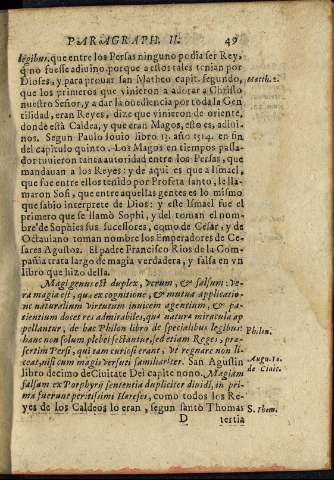 PARAGRAPH. II. 49
legibus. que entre los Persas ninguno podia ser Rey,
q̃ no fuesse adiuino, porque a estos tales tenian por
Dioses, y para prouar san Matheo capit. segundo, Matth. 2.
que los primeros que vinieron a adorar a Christo
nuestro Señor, y a dar la obediencia por toda la Gen
tilidad, eran Reyes, dize que vinieron de oriente,
donde està Caldea, y que eran Magos, esto es, adiui-
nos. Segun Paulo Iouio libro 13. año 1514. en fin
del capitulo quinto. Los Magos en tiempos passa-
dos tuuieron tanta autoridad entre los Persas, que
mandauan a los Reyes: y de aqui es que a Ismael,
que fue entre ellos tenido por Profeta santo, le lla-
maron Sofi, que entre aquellas gentes es lo mismo
que sabio interprete de Dios: y este Ismael fue el
primero que se llamò Sophi, y del toman el nom-
bre de Sophies sus sucessores, como de Cesar, y de
Octauiano toman nombre los Emperadores de Ce-
sares Augustos. El padre Francisco Rios de la Com-
pañia trata largo de magia verdadera, y falsa en vn
libro que hizo della.
Magi genus est duplex, verum, & falsum: ve-
ra magia est, qua ex cognitione, & mutua applicatio-
ne naturalium virtutum inuicem agentium, & pa-
tientium docet res admirabiles, qua natura miracula ap
pellantur, de hac Philon libro de specialibus legibus: Philon.
hanc non solum plebei sectantur, sed etiam Reges, præ-
sertim Persi, qui tam curiosi erant, vt regnare non li-
ceat, nisi cum magis versati familiariter. San Agustin Augu. 10.
libro decimo de Ciuitate Dei capite nono. Magiam de Ciuit.
falsam ex Porphyrij sententia dupliciter diuidi, in pri-
ma fuerunt peritissimi Hæreses, como todos los Re-
yes de los Caldeos lo eran, segun santo Thomas S. Thom.
D tertia